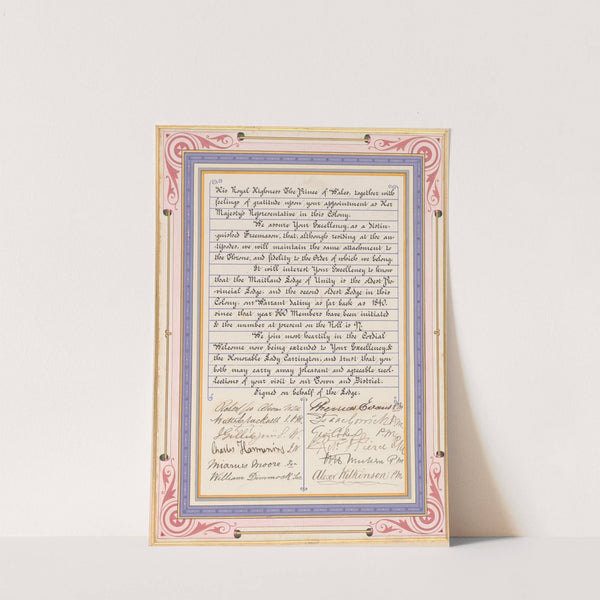 His Royal Highness The Prince of Wales, together with
feelings of gratitude upon your appointment as Her
Majesty's Representative in this Colony.
We assure Your Excellency, as a Distin-
guished Freemason, that, although residing at the an-
tipodes, we will maintain the same attachment to
the Throne, and fidelity to the Order of which we belong.
It will interest Your Excellency to know
that the Maitland Lodge of Unity is the oldest Pro-
vincial Lodge, and the second oldest Lodge in this
Colony; our Warrant dating as far back as 1840.
since that year 860 Members have been initiated
& the number at present on the Roll is 47.
We join most heartily in the Cordial
Welcome now being extended to Your Excellency &
the Honorable Lady Carrington, and trust that you
both may carry away pleasant and agreeable recol-
lections of your visit to our Town and District.
Signed on behalf of the Lodge.
Thomas Evans PM
P.M.
Charles Hammings
P.M.
Moore
William Dimmock Sec
Alexr Wilkinson PM